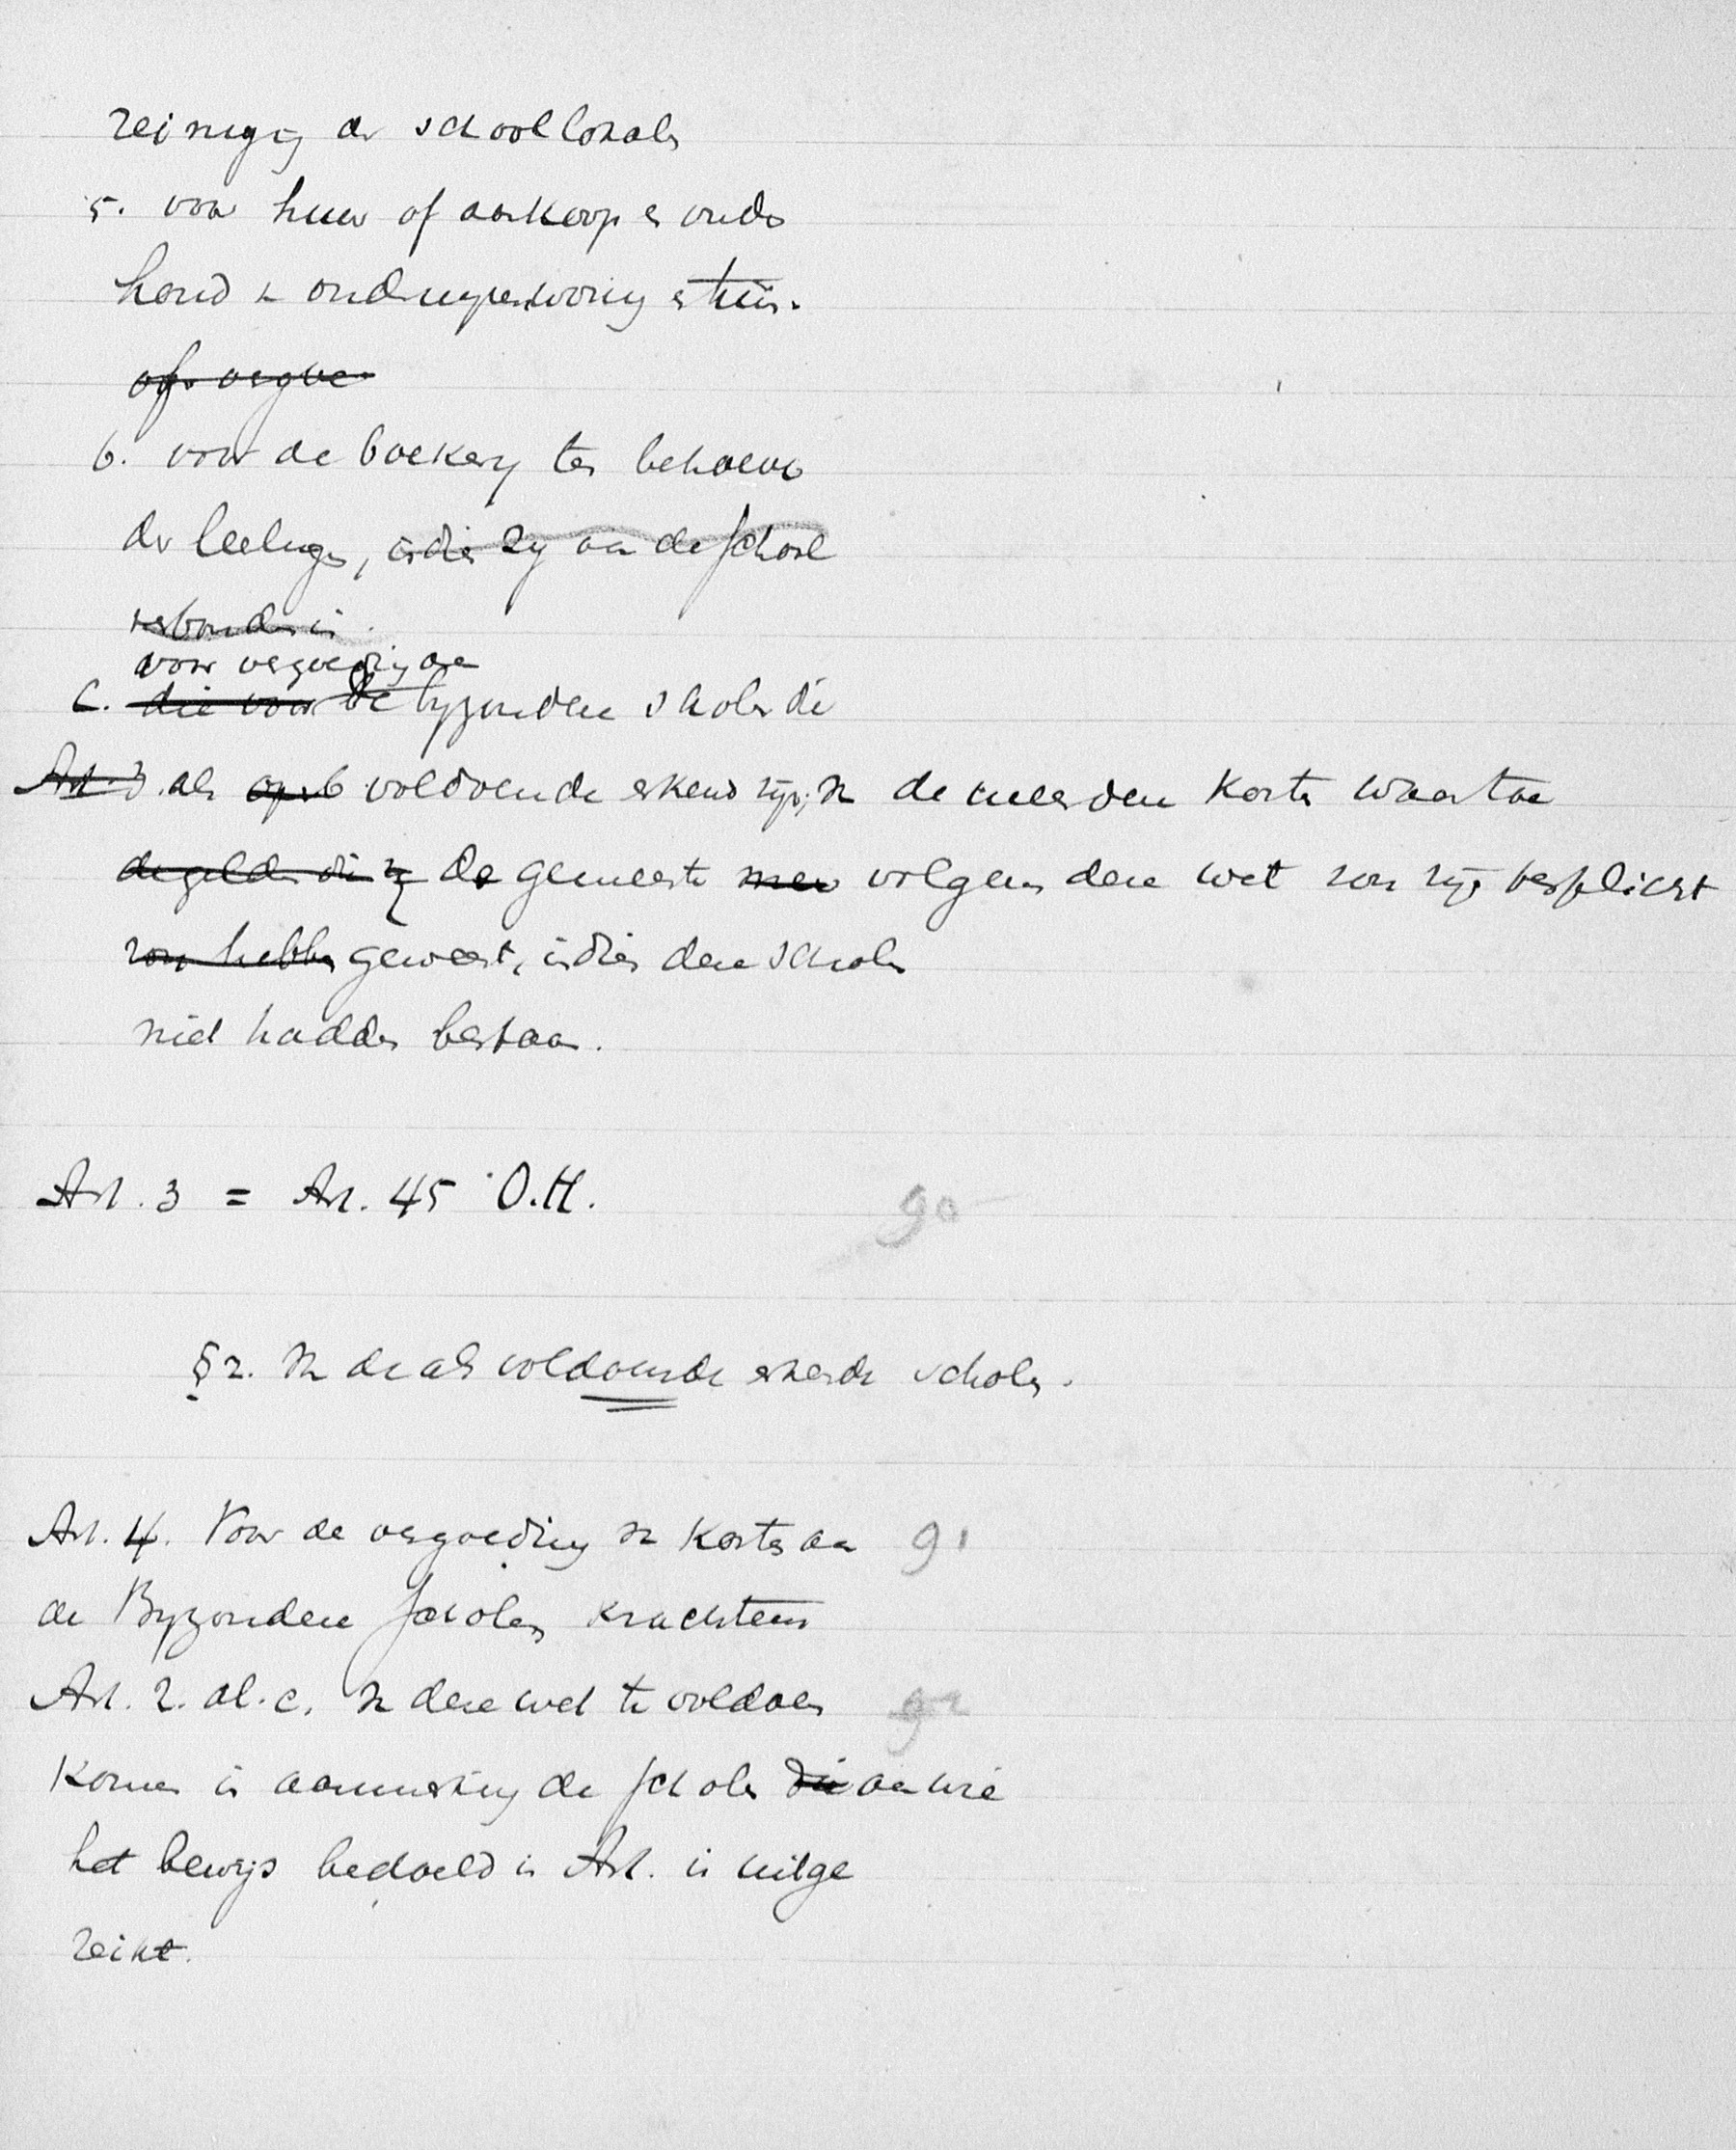 reiniging der schoollokalen
5. voor huur of aankoop en onder
houd v. onderwijzerswoning en tuin.
of vergoe
6. voor de boekerij ten behoeve
der leerlingen, indien zij aan de school
verbonden is.
voor vergoeding aan
C. die voor de byzondere scholen die
Art. 3. als op b voldoende erkend zijn, van de meerdere kosten waartoe
de gelden die zij de gemeente volgens deze wet zou zijn verplicht
zou hebben geweest, indien deze scholen
niet hadden bestaan.
Art. 3 = Art. 45 O.H.
90
§ 2. Van de als voldoende erkende scholen.
Art. 4. Voor de vergoeding van kosten aan
91
de Byzondere scholen krachtens
Art. 2. al. c. van deze wet te voldoen
92
komen in aanmerking de scholen die aan wie
het bewijs bedoeld in Art. is uitge
reikt.